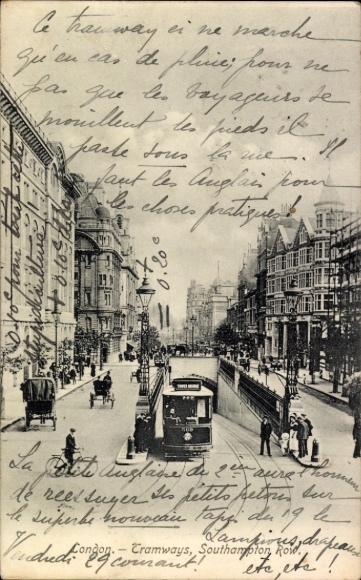 Ce tramway ci ne marche
qu'en cas de pluie; pour ne
pas que les voyageurs se
mouillent les pieds il
passe sous la rue. Il
faut les Anglais pour
les choses pratiques!
+ 0.60c
La petite Anglaise du 2ième aura l'honneur
de ressuyer ses petits petons sur
le superbe nouveau tapis de 19 le
London. - Tramways, Southampton Row.
Vendredi 29 courant! Lampions, drapeaux
etc etc!